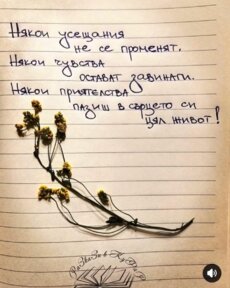 Някои усещания
не се променят.
Някои чувства
остават завинаги.
Някои приятелства
пазиш в сърцето си
цял живот!